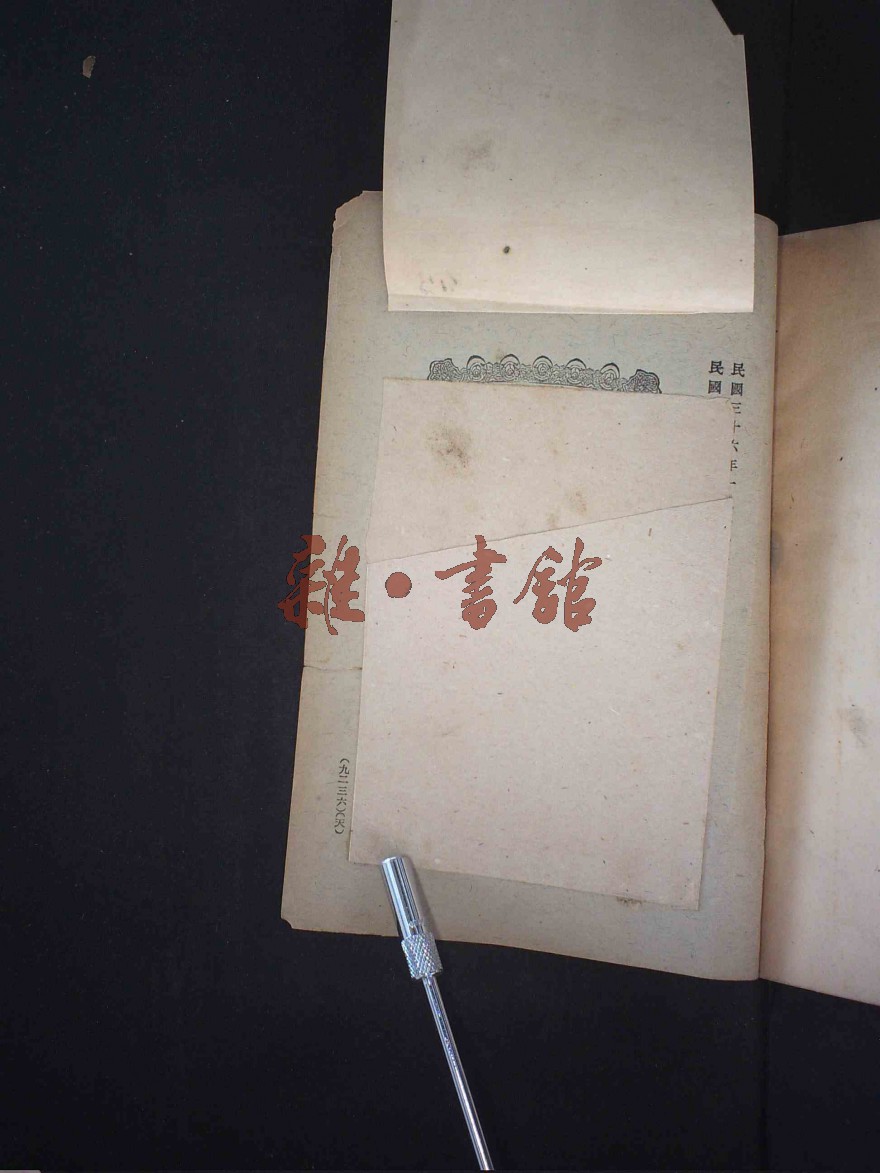 民國三十六年一
民國
(九二三六)(尺)
雜·書館